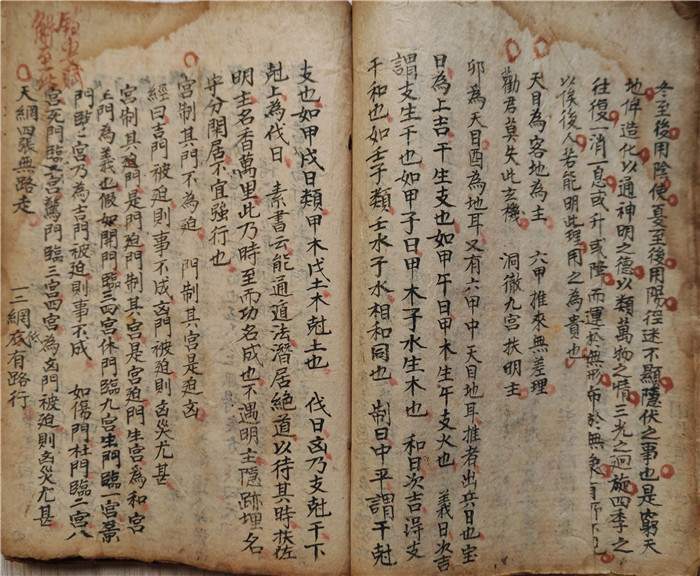 冬至後用陰使夏至後用陽徑迷不顯隱伏之事也是窮天
地俾造化以通神明之德以類萬物之情三光之迴施四季之
往復一消一息或升或降而運於無形布於無象
以俟後人若能明此理用之為貴也
天目為客地為主 六甲推來無差理
勸君莫失此玄機 洞徹九宮扶明主
卯為天目酉為地耳又有六甲中天目地耳推者出兵日也宝
日為上吉干生支也如甲午日甲木生午支火也 義日次吉
謂支生干也如甲子日甲木子水生木也 和日次吉得支
干和也如壬子類壬水子水相和同也 制日中平謂干尅
支也如甲戌日類甲木戊土木尅土也 伐日凶乃支尅干下
尅上為代日 素書云能通道法潛居絕道以待其時扶佐
明主名香萬里此乃時至而功名成也不遇明主隱跡埋名
守分閑居不宜強行也
宮制其門不為迫 門制其宮是迫凶
經曰吉門被迫則事不成凶門被迫則凶災尤甚
宮制其迫門是門迫門制其宮是宮迫門生宮為和宮
生門為義也假如開門臨三四宮休門臨九宮生門臨一宮景
門臨之宮乃為吉門被迫則事不成 如傷門杜門臨二宮八
宮死門臨一宮驚門臨三宮四宮為凶門被迫則凶災尤甚
天網四張無路走 一二網低有路行